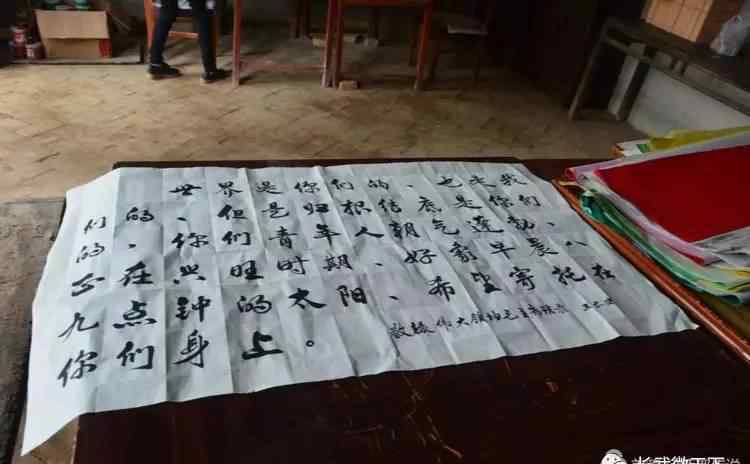 世界是你们的、也是我
们的、但是归根结底是你们
的、你们青年人朝气蓬勃、
正在兴旺时期、好象早晨八
九点钟的太阳、希望寄托在
你们身上。
敬录伟大领袖毛主席语录